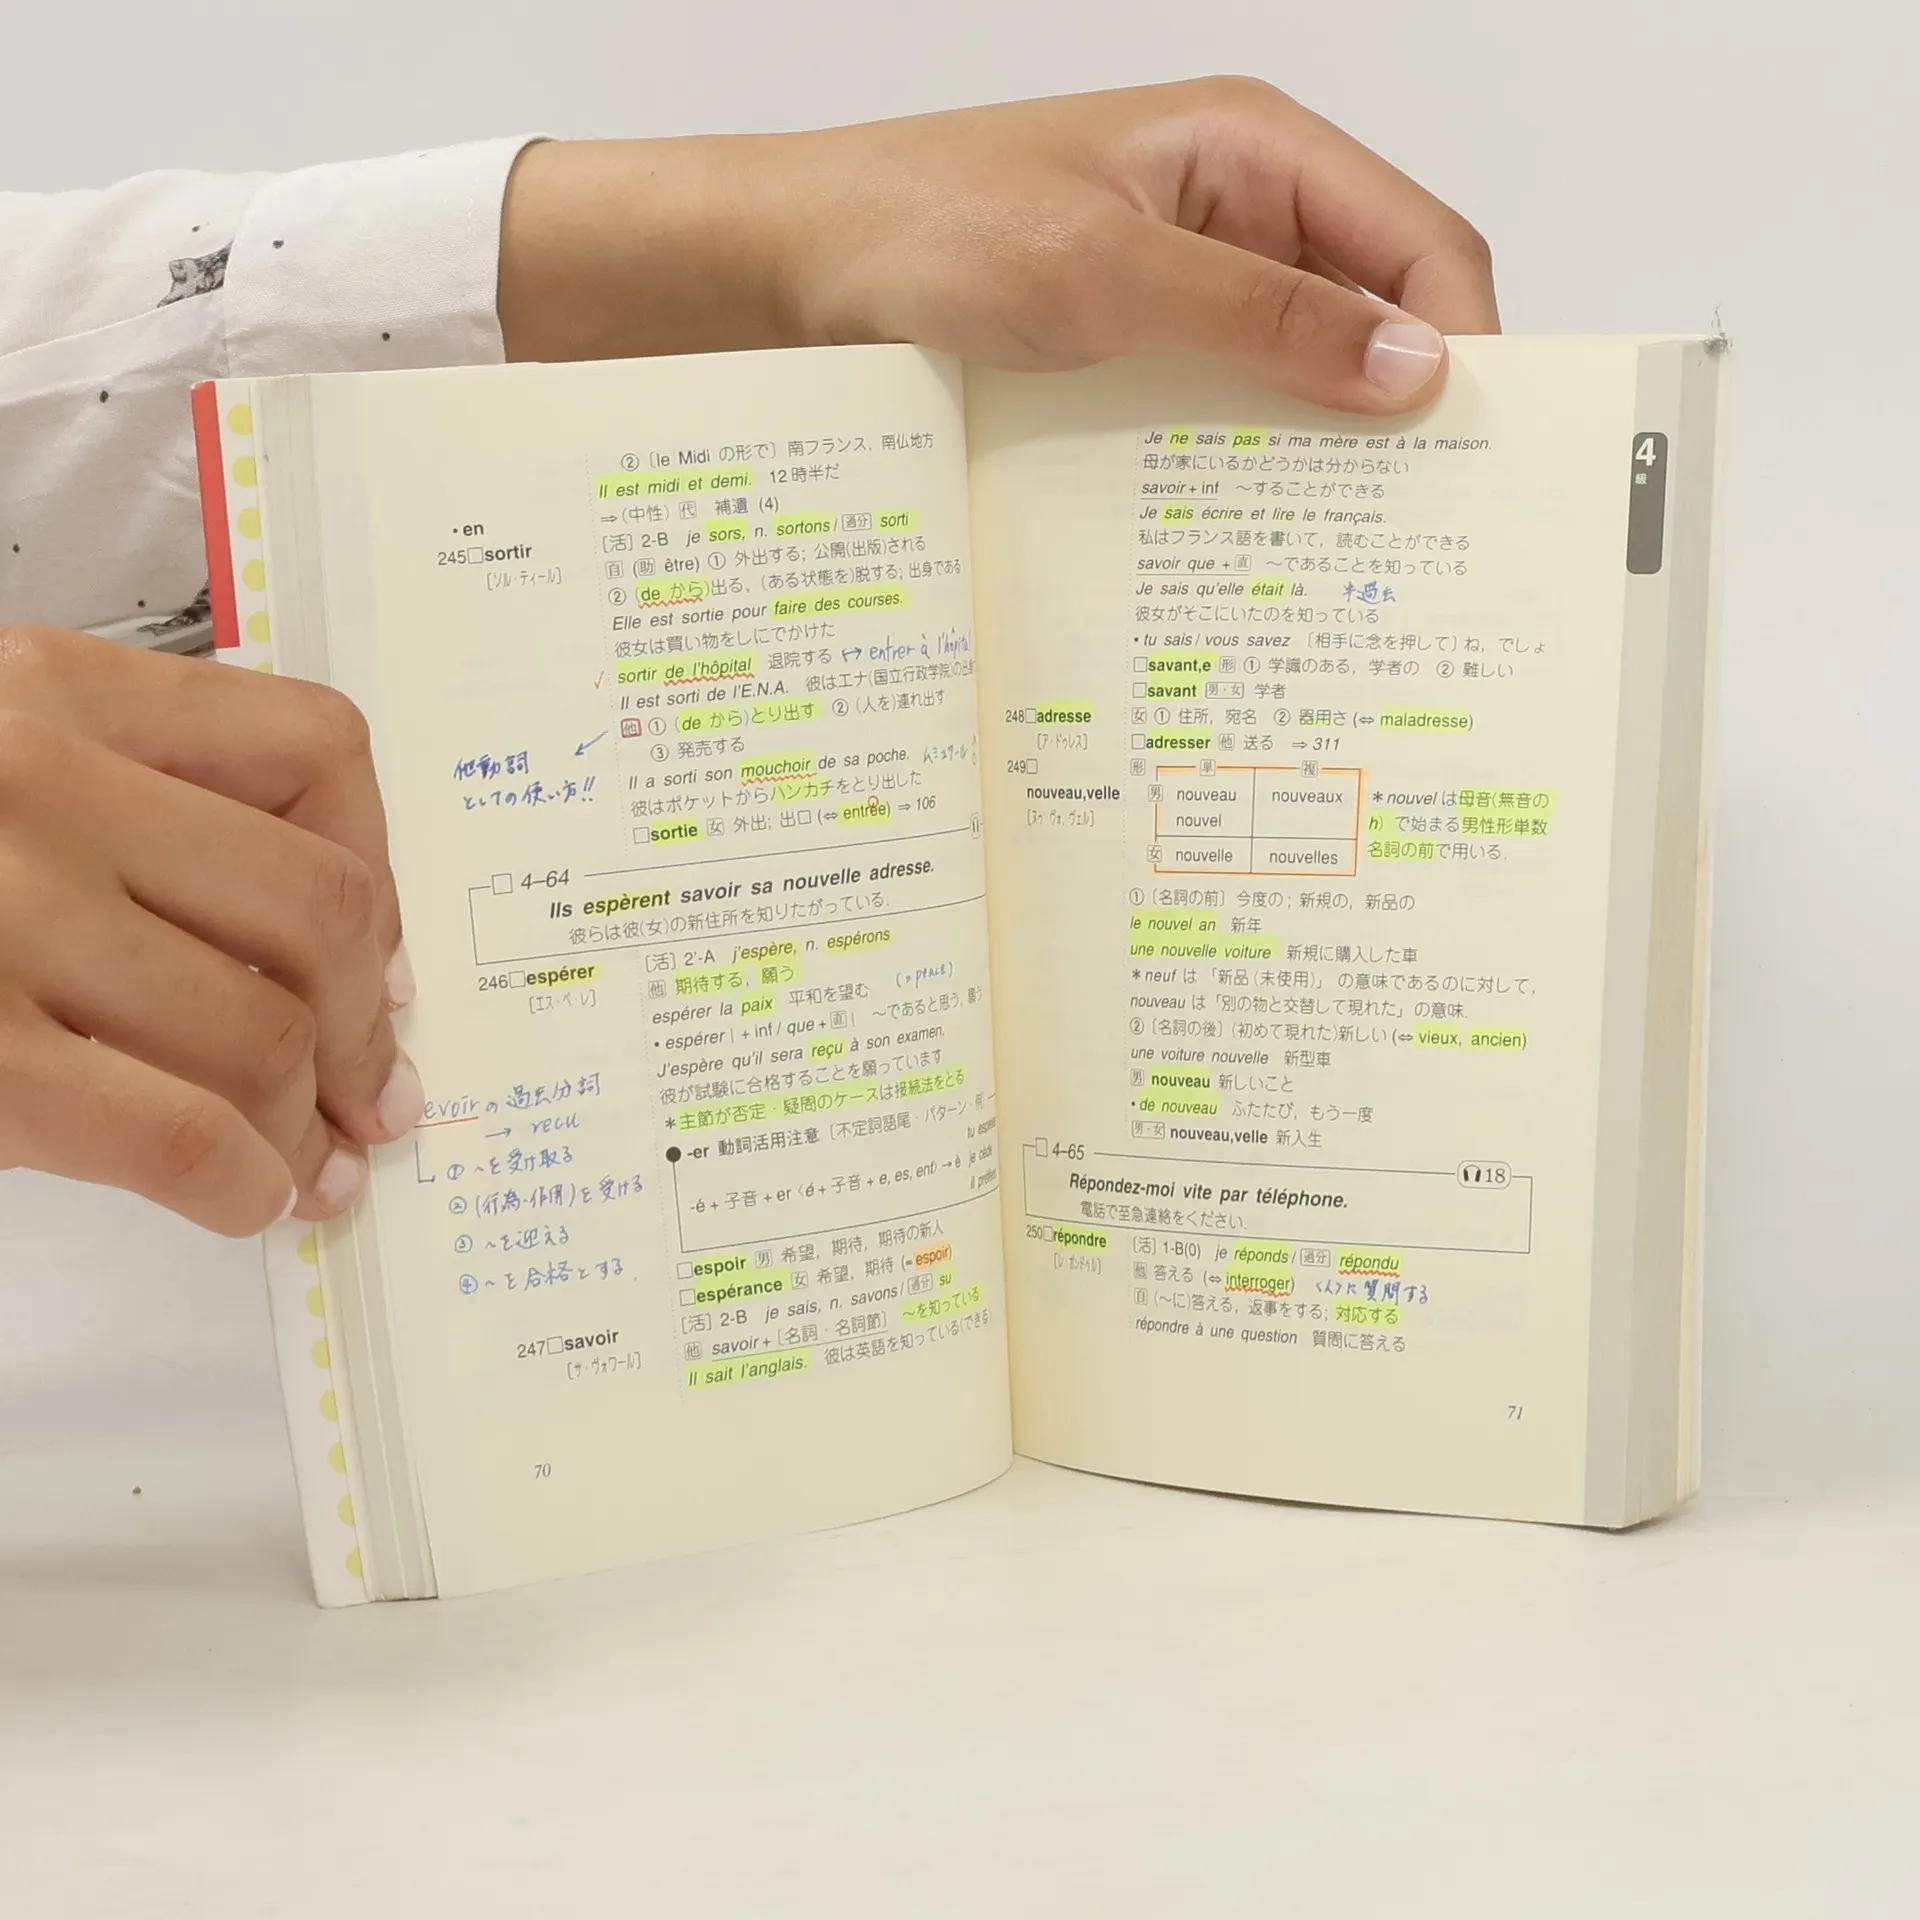 ② 〔le Midi の形で〕 南フランス, 南仏地方
Il est midi et demi. 12時半だ
•en ⇒(中性) 代 補遺 (4)
245□sortir [活] 2-B je sors, n. sortons / 過分 sorti
[ソル・ティール] 自 (助 être) ① 外出する; 公開(出版)される
② (de から)出る, (ある状態を)脱する; 出身である
Elle est sortie pour faire des courses.
彼女は買い物をしにでかけた
✓ sortir de l'hôpital 退院する ↔ entrer à l'hôpital
Il est sorti de l'E.N.A. 彼はエナ(国立行政学院)の出身
他 ① (de から)とり出す ② (人を)連れ出す
③ 発売する
他動詞
としての使い方!!
Il a sorti son mouchoir de sa poche.
彼はポケットからハンカチをとり出した
□sortie 女 外出; 出口 (⇔ entrée) ⇒ 106
□ 4–64
Ils espèrent savoir sa nouvelle adresse.
彼らは彼(女)の新住所を知りたがっている.
246□espérer [活] 2'-A j'espère, n. espérons
[エス・ペ・レ] 他 期待する, 願う
espérer la paix 平和を望む (= peace)
• espérer | + inf / que + 直 | ～であると思う, 願う
J'espère qu'il sera reçu à son examen.
彼が試験に合格することを願っています
＊主節が否定・疑問のケースは接続法をとる
evoir の過去分詞
→ recu
① ～を受け取る
② (行為・作用)を受ける
③ ～を迎える
④ ～を合格とする.
●-er 動詞活用注意〔不定詞語尾・パターン・例
tu espè
-é + 子音 + er〈é + 子音 + e, es, ent〉→ è je cède
il préfère
□espoir 男 希望, 期待, 期待の新人
□espérance 女 希望, 期待 (= espoir)
247□savoir [活] 2-B je sais, n. savons / 過分 su
[サ・ヴォワール] 他 savoir + 〔名詞・名詞節〕 ～を知っている
Il sait l'anglais. 彼は英語を知っている(できる)
70
Je ne sais pas si ma mère est à la maison.
母が家にいるかどうかは分からない
savoir + inf ～することができる
Je sais écrire et lire le français.
私はフランス語を書いて, 読むことができる
savoir que + 直 ～であることを知っている
Je sais qu'elle était là. 半過去
彼女がそこにいたのを知っている
• tu sais / vous savez 〔相手に念を押して〕ね, でしょ
□savant,e 形 ① 学識のある, 学者の ② 難しい
□savant 男・女 学者
248□adresse 女 ① 住所, 宛名 ② 器用さ (⇔ maladresse)
[ア・ドゥレス] □adresser 他 送る ⇒ 311
249□ 形 単 複
nouveau,velle 男 nouveau nouveaux
[ヌゥ・ヴォ, ヴェル] nouvel
女 nouvelle nouvelles
＊nouvel は母音(無音の
h) で始まる男性形単数
名詞の前で用いる.
① 〔名詞の前〕 今度の; 新規の, 新品の
le nouvel an 新年
une nouvelle voiture 新規に購入した車
＊neuf は「新品 (未使用)」の意味であるのに対して,
nouveau は「別の物と交替して現れた」の意味.
② 〔名詞の後〕 (初めて現れた)新しい (⇔ vieux, ancien)
une voiture nouvelle 新型車
男 nouveau 新しいこと
• de nouveau ふたたび, もう一度
男・女 nouveau,velle 新入生
□ 4–65
18
Répondez-moi vite par téléphone.
電話で至急連絡をください.
250□répondre [活] 1-B(0) je réponds / 過分 répondu
[レ・ポンドゥル] 他 答える (⇔ interroger) 〈人〉に質問する
自 (～に)答える, 返事をする; 対応する
répondre à une question 質問に答える
71
4
級